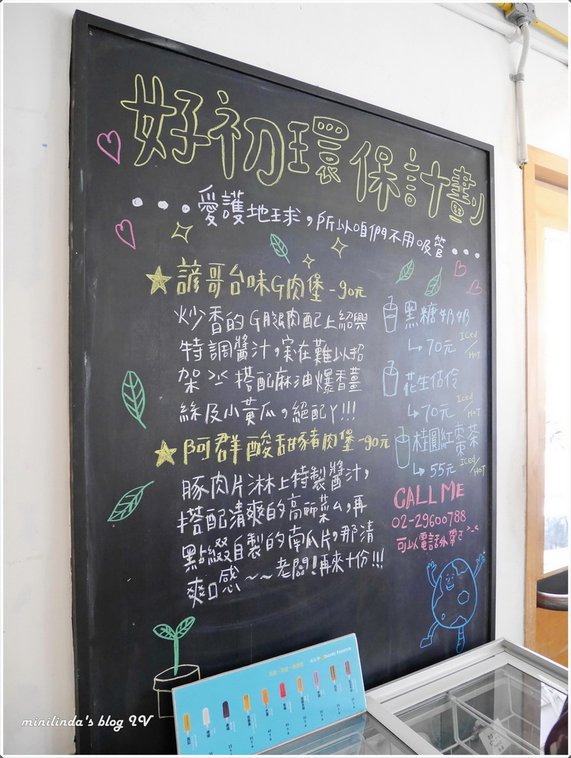 好初環保計劃
•••愛護地球，所以咱們不用吸管•••
★諺哥台味G肉堡-90元
炒香的G腿肉配上紹興
特調醬汁，實在難以招
架>"<搭配麻油爆香薑
絲及小黃瓜，絕配ㄚ!!!
★阿群酸甜豬肉堡-90元
豚肉片淋上特製醬汁，
搭配清爽的高麗菜ㄙ，再
點綴自製的南瓜片，那清
爽口感~~老闆!再來十份!!!
黑糖奶奶
↳70元 Iced/HOT
花生估伶
↳70元 Iced/HOT
桂圓紅棗茶
↳55元 Iced/HOT
CALL ME
02-29600788
可以電話外帶ㄛ^_^
minilinda's blog IV